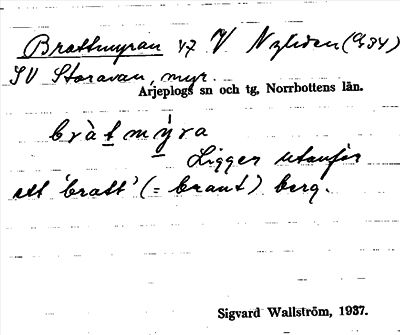 Brattmyran 47 V Nyliden (934)
SV Storavan, myr.
Arjeplogs sn och tg, Norrbottens län.
bràt mýra
Ligger utanför
ett 'bratt' (= brant) berg.
Sigvard Wallström, 1937.